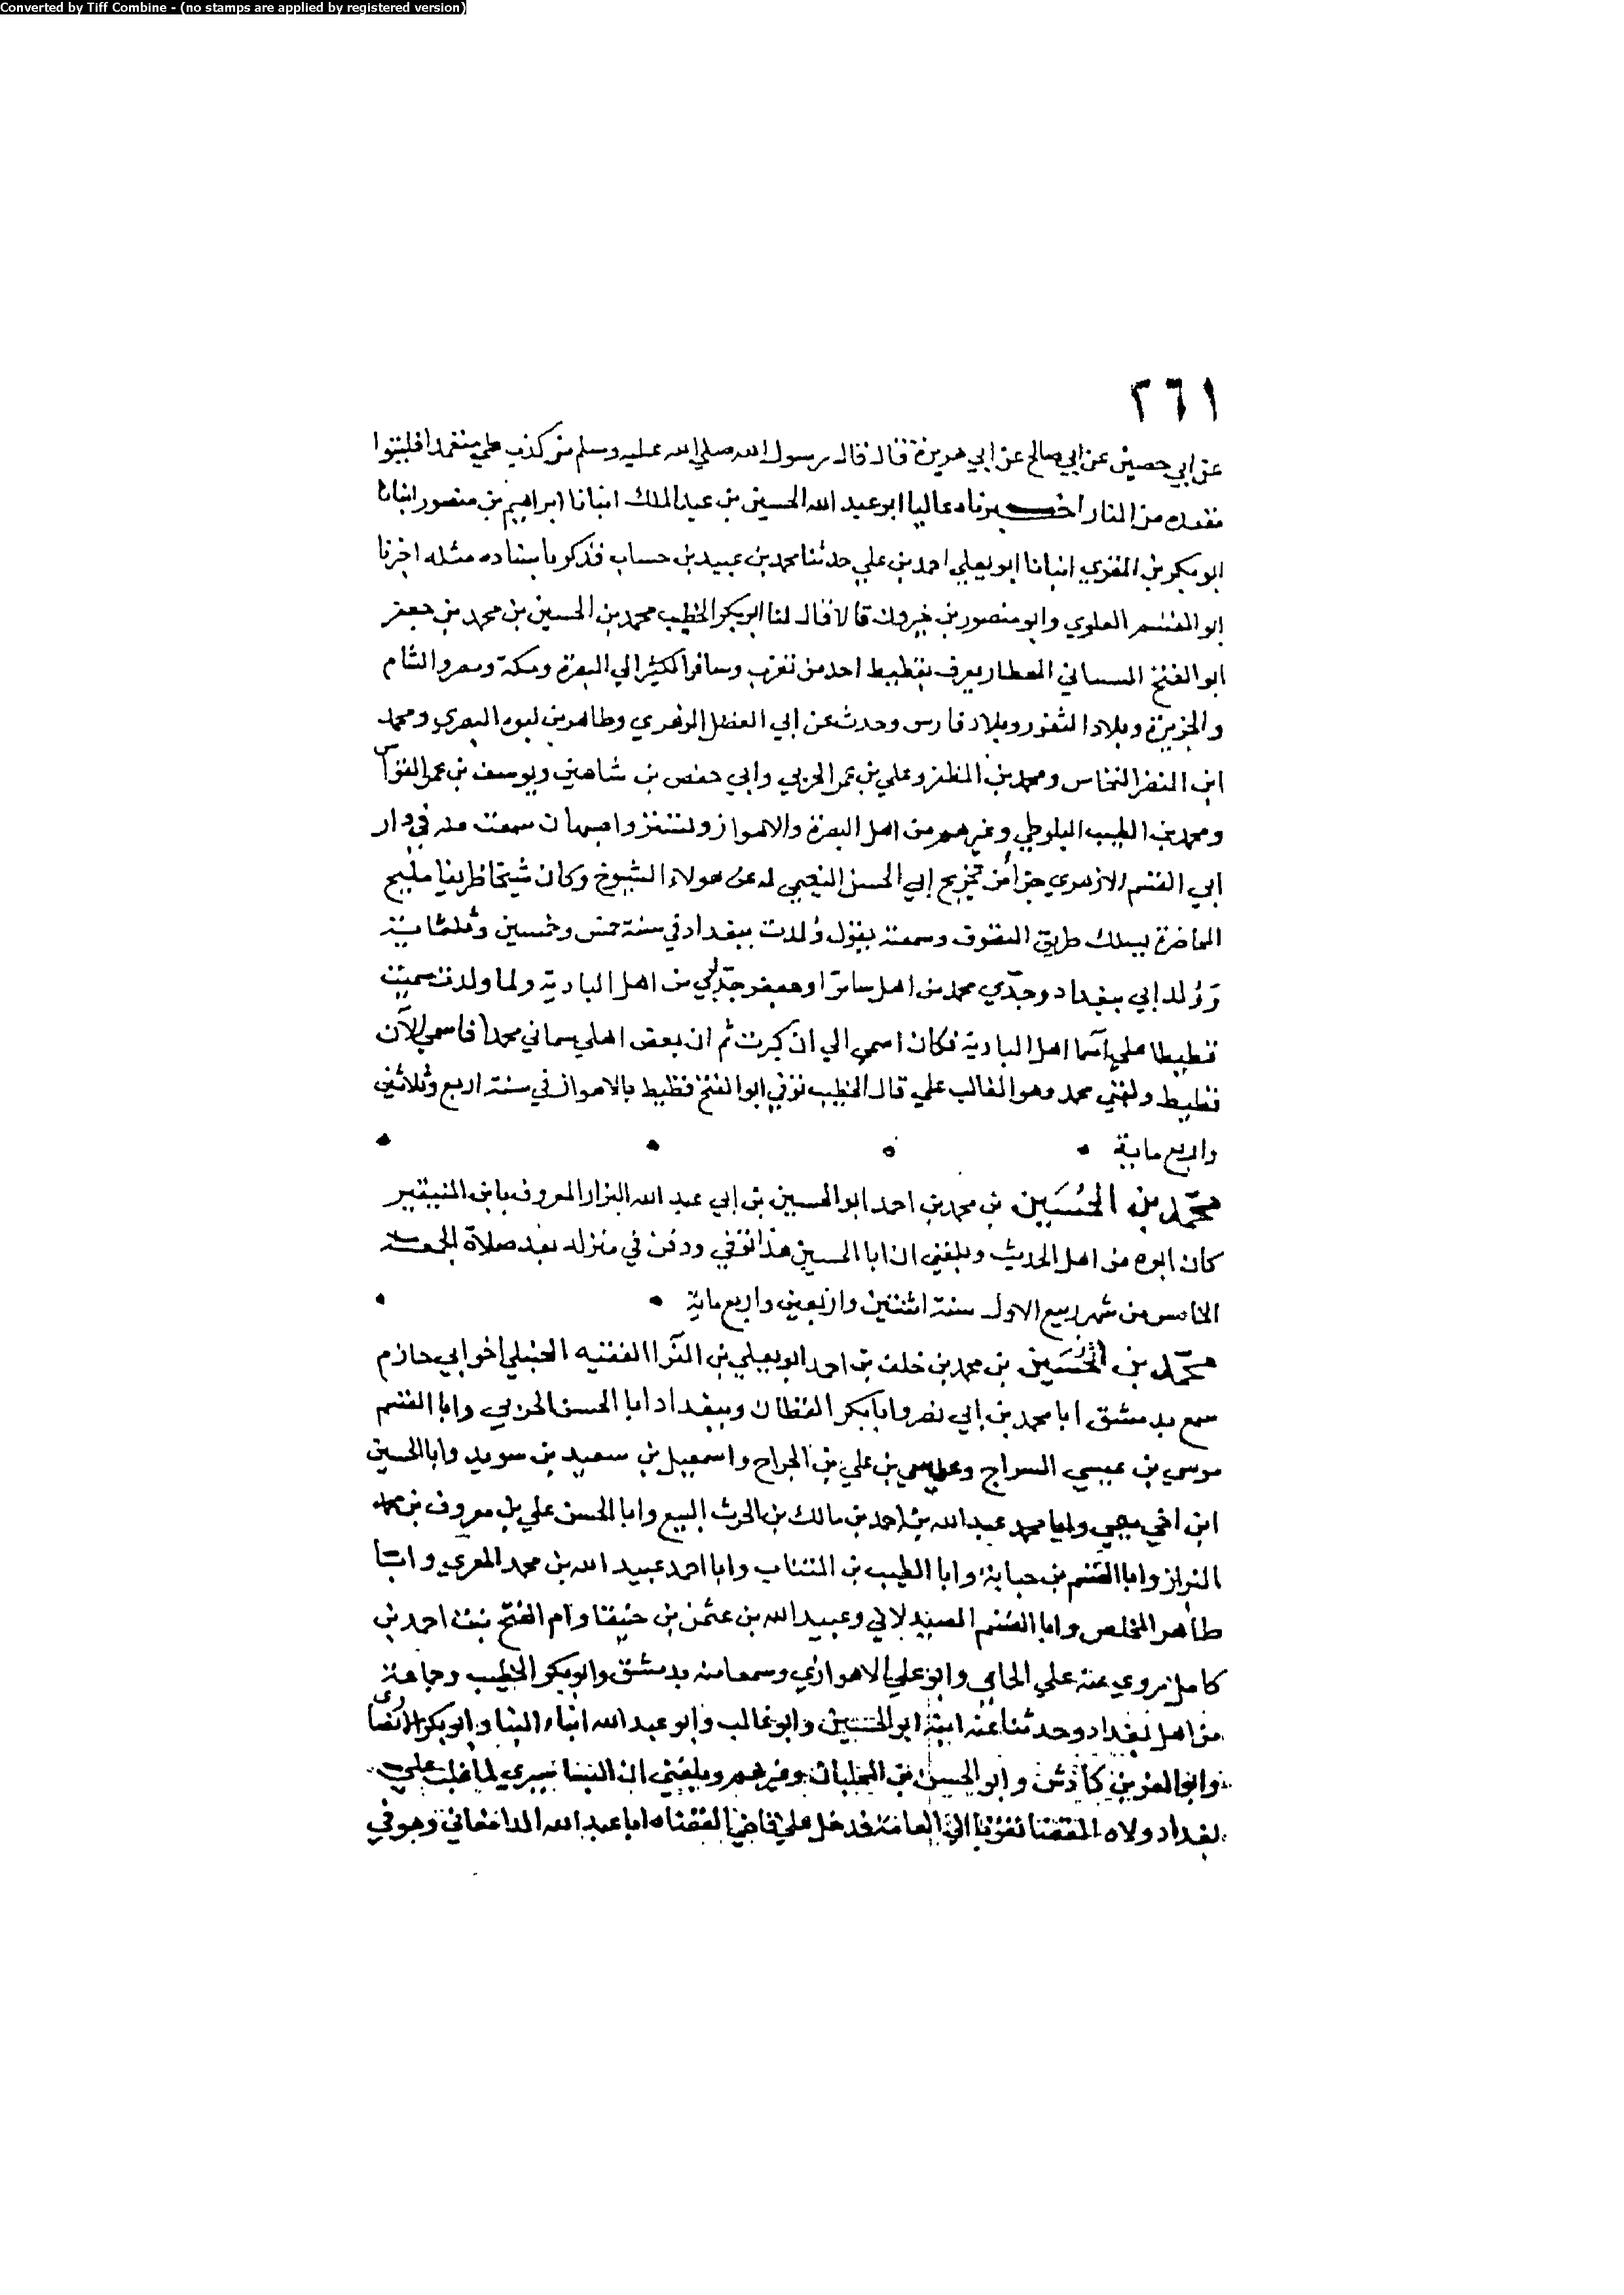 Converted by Tiff Combine - (no stamps are applied by registered version)
٢٦١
عن ابي حصين عن ابي صالح عن ابي هريرة قال قال رسول الله صلي الله عليه وسلم من كذب علي متعمدا فليتبوا
مقعده من النار اخبرناه عاليا ابو عبد الله الحسين بن عبد الملك انبانا ابراهيم بن منصور انبانا
ابو بكر بن المقري انبانا ابو يعلي احمد بن علي حدثنا محمد بن عبيد بن حساب فذكر باسناده مثله اخبرنا
ابو القسم العلوي وابو منصور بن خيرون قالا قال لنا ابو بكر الخطيب محمد بن الحسين بن محمد بن جعفر
ابو الفتح الشيباني العطار يعرف بقطيط احد من تغرب وسافر الكثير الي البصرة ومكة ومصر والشام
والجزيرة وبلاد الثغور وبلاد فارس وحدث عن ابي الفضل الزهري وطاهر بن لبوه البصري ومحمد
ابن النضر النخاس ومحمد بن المظفر وعلي بن عمر الحربي وابي حفص بن شاهين ويوسف بن عمر القواس
ومحمد بن الطيب البلوطي وغيرهم من اهل البصرة والاهواز وتستر واصبهان سمعت منه في دار
ابي القسم الازهري جزأ من تخريج ابي الحسن النعيمي له عن هولاء الشيوخ وكان شيخا ظريفا مليح
المحاضرة يسلك طريق التصوف وسمعته يقول ولدت ببغداد في سنة خمس وخمسين وثلثماية
وولد ابي ببغداد وجدي محمد من اهل سامرا وجعفر جد ابي من اهل البادية ولما ولدت سميت
قطيطا علي اسما اهل البادية فكان اسمي الي ان كبرت ثم ان بعض اهلي سماني محمدا فاسمي الان
قطيط ولقبي محمد وهو الغالب علي قال الخطيب توفي ابو الفتح قطيط بالاهواز في سنة اربع وثلاثين
واربع ماية
محمد بن الحسين بن محمد بن احمد ابو الحسين بن ابي عبد الله البزار المعروف بابن المنيقير
كان ابوه من اهل الحديث وبلغني ان ابا الحسين هذا توفي ودفن في منزله بعد صلاة الجمعة
الخامس من شهر ربيع الاول سنة اثنتين واربعين واربع ماية
محمد بن الحسين بن محمد بن خلف بن احمد ابو يعلي بن الفرا الفقيه الحنبلي اخو ابي حازم
سمع بدمشق ابا محمد بن ابي نصر وابا بكر القطان وببغداد ابا الحسن الحربي وابا القسم
موسي بن عيسي السراج وعيسي بن علي بن الجراح واسمعيل بن سعيد بن سويد وابا الحسين
ابن اخي ميمي وابا محمد عبد الله بن احمد بن مالك بن الحرث البيع وابا الحسن علي بن معروف بن محمد
البزاز وابا القسم بن حبابة وابا الطيب بن المنتاب وابا احمد عبيد الله بن محمد المقري وابا
طاهر المخلص وابا القسم الصيدلاني وعبيد الله بن عثمن بن جنيقا وام الفتح بنت احمد بن
كامل روي عنه علي الحاي وابو علي الاهوازي وسمعا منه بدمشق وابو بكر الخطيب وجماعة
من اهل بغداد وحدثنا عنه ابنه ابو الحسين وابو غالب وابو عبد الله ابناء البنا وابو بكر الانصاري
وابو العز بن كادش وابو الحسن بن المجلبان وغيرهم وبلغني ان البساسيري لما غلب علي
بغداد ولاه القضا تقربا الي العامة فدخل علي قاضي القضاه ابا عبد الله الدامغاني وهو في